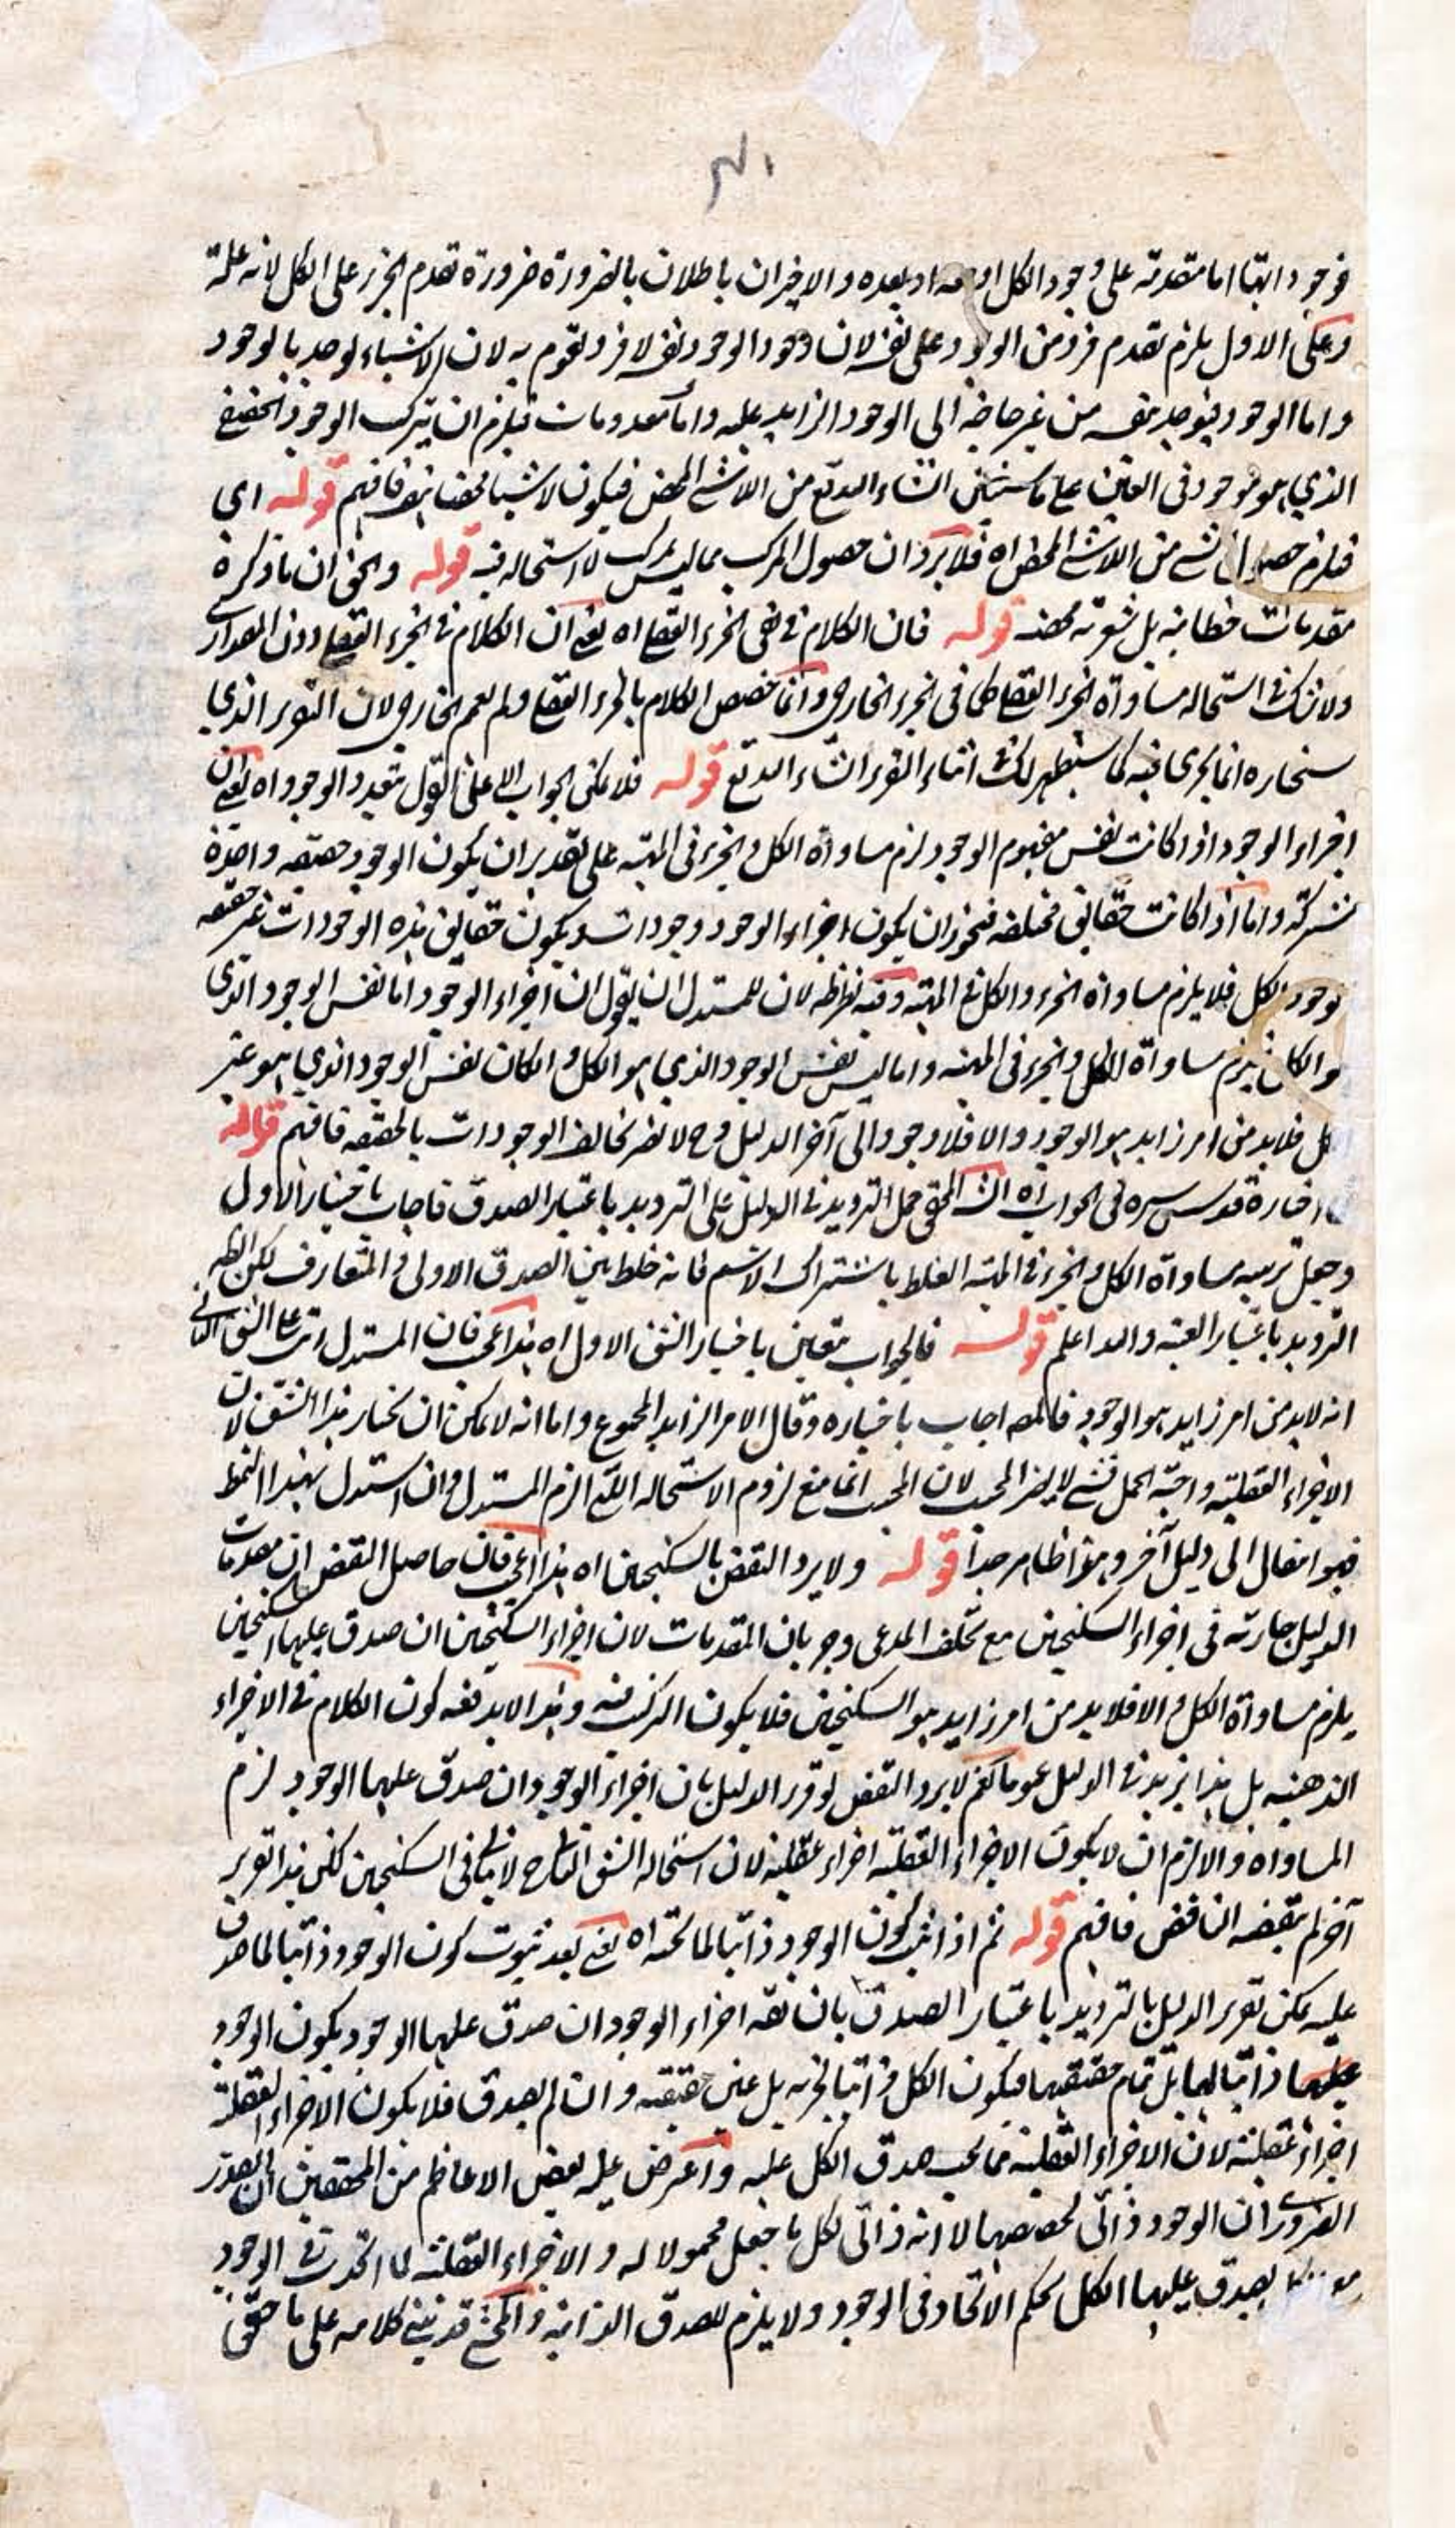 فوجود اتها اما متقدمة على وجود الكل او معه او بعده والاخيران باطلان بالضرورة ضرورة تقدم الجزء على الكل لانه علة
وعلى الاول يلزم تقدم فرد من الوجود على نفسه لان وجود الوجود نفسه لا فرد يقوم به لان الاشياء توجد بالوجود
واما الوجود فيوجد بنفسه من غير حاجة الى الوجود الزايد عليه واما معدومات فيلزم ان يتركب الوجود الحقيقي
الذي هو موجود في العين على ما سيتبين انشاء الله تع من اللاشئ المحض فيكون لا شيئا محضا هف فافهم قوله اى
فيلزم حصول الشئ من اللاشئ المحض اه فلا يرد ان حصول المركب مما ليس بمركب لا استحالة فيه قوله والحق ان ما ذكره
مقدمات خطابية بل شعرية محضه قوله فان الكلام في نفى الجزء العقلى اه يعنى ان الكلام في الجزء العقلى دون المقدارى
ولا شك في استحالة مساواة الجزء العقلى كما في الجزء الخارجى وانما خصص الكلام بالجزء العقلى ولم يعمم الخارجى لان التقرير الذي
سنختاره انما يجرى فيه كما سيظهر لك في اثناء التقرير انشاء الله تع قوله فلا يمكن الجواب الا على القول بتعدد الوجود اه يعنى ان
اجزاء الوجود اذا كانت نفس مفهوم الوجود لزم مساواة الكل والجزء في المهية على تقدير ان يكون الوجود حقيقة واحدة
مشتركة واما اذا كانت حقائق مختلفه فيجوز ان يكون اجزاء الوجود وجودات ويكون حقائق هذه الوجودات غير حقيقة
وجود الكل فلا يلزم مساواة الجزء والكل في المهية وفيه نظر ظ لان للمستدل ان يقول ان اجزاء الوجود اما نفس الوجود الذى
هو الكل يلزم مساواة الكل والجزء في المهية واما ليس نفس الوجود الذي هو الكل وان كان نفس الوجود الذي هو غير
الكل فلابد من امر زايد هو الوجود والا فلا وجود الى آخر الدليل وح لا يضر تخالف الوجودات بالحقيقه فافهم قوله
اختاره قدس سره في الجواب اه ان المحقق حمل الترديد في الدليل على الترديد باعتبار الصدق فاجاب باختيار الاول
وجعل ترتيب مساواة الكل والجزء في المهية الغلط باشتراك الاسم فانه خلط بين الصدق الاولى والمتعارف لكن الظ
الترديد باعتبار العينية والله اعلم قوله فالجواب متعين باختيار الشق الاول اه هذا عجيب فان المستدل رتب على الشق الثاني
انه لابد من امر زايد هو الوجود فالمص اجاب باختياره وقال الامر الزايد المجموع واما انه لا يمكن ان يختار هذا الشق لان
الاجزاء العقلية واجبة الحمل فشئ لا يضر المجيب لان المجيب انما منع لزوم الاستحالة التى الزم المستدل وان استدل بهذا النمط
فهو انتقال الى دليل آخر وهو ظاهر جدا قوله ولا يرد النقض بالسكنجبين اه هذا عجيب فان حاصل النقض ان مقدمات
الدليل جارية في اجزاء السكنجبين مع تخلف المدعى وجريان المقدمات لان اجزاء السكنجبين ان صدق عليها السكنجبين
يلزم مساواة الكل والا فلابد من امر زايد هو السكنجبين فلا يكون التركيب فيه وهذا لا يدفعه كون الكلام في الاجزاء
الذهنيه بل هذا يزيد في الدليل عموما نعم لا يرد النقض لو قرر الدليل بان اجزاء الوجود ان صدق عليها الوجود لزم
المساواه والا لزم ان لا يكون الاجزاء العقلية اجزاء عقلية لان استحالة الشق الثانى ح لا يتاتى في السكنجبين لكن هذا تقرير
آخر لم ينقضه الناقض فافهم قوله ثم اذا ثبت كون الوجود ذاتيا لما تحته اه يعنى بعد ثبوت كون الوجود ذاتيا لما صدق
عليه يمكن تقرير الدليل بالترديد باعتبار الصدق بان نقه اجزاء الوجود ان صدق عليها الوجود يكون الوجود
عليها ذاتيا لها بل تمام حقيقتها فيكون الكل ذاتيا لجزئه بل عين حقيقته وان لم يصدق فلا يكون الاجزاء العقلية
اجزاء عقلية لان الاجزاء العقلية مما يجب صدق الكل عليه واعترض عليه بعض الاعاظم من المحققين ان القدر
الضرورى ان الوجود ذاتى لحصصها لا انه ذاتى لكل ما جعل محمولا له والاجزاء العقلية لما اتحدت في الوجود
مع الكل يصدق عليها الكل بحكم الاتحاد في الوجود ولا يلزم للصدق الذاتية والمحشى قد بنى كلامه على ما حقق